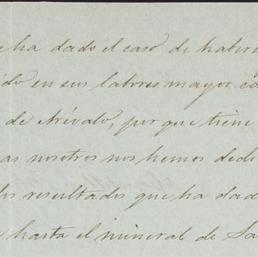 e ha dado el caso de haber
ido en sus labores mayor ca
de Arévalo, por que tiene
as nosotros nos hemos dedi
los resultados que ha dad
e hasta el mineral de Sa